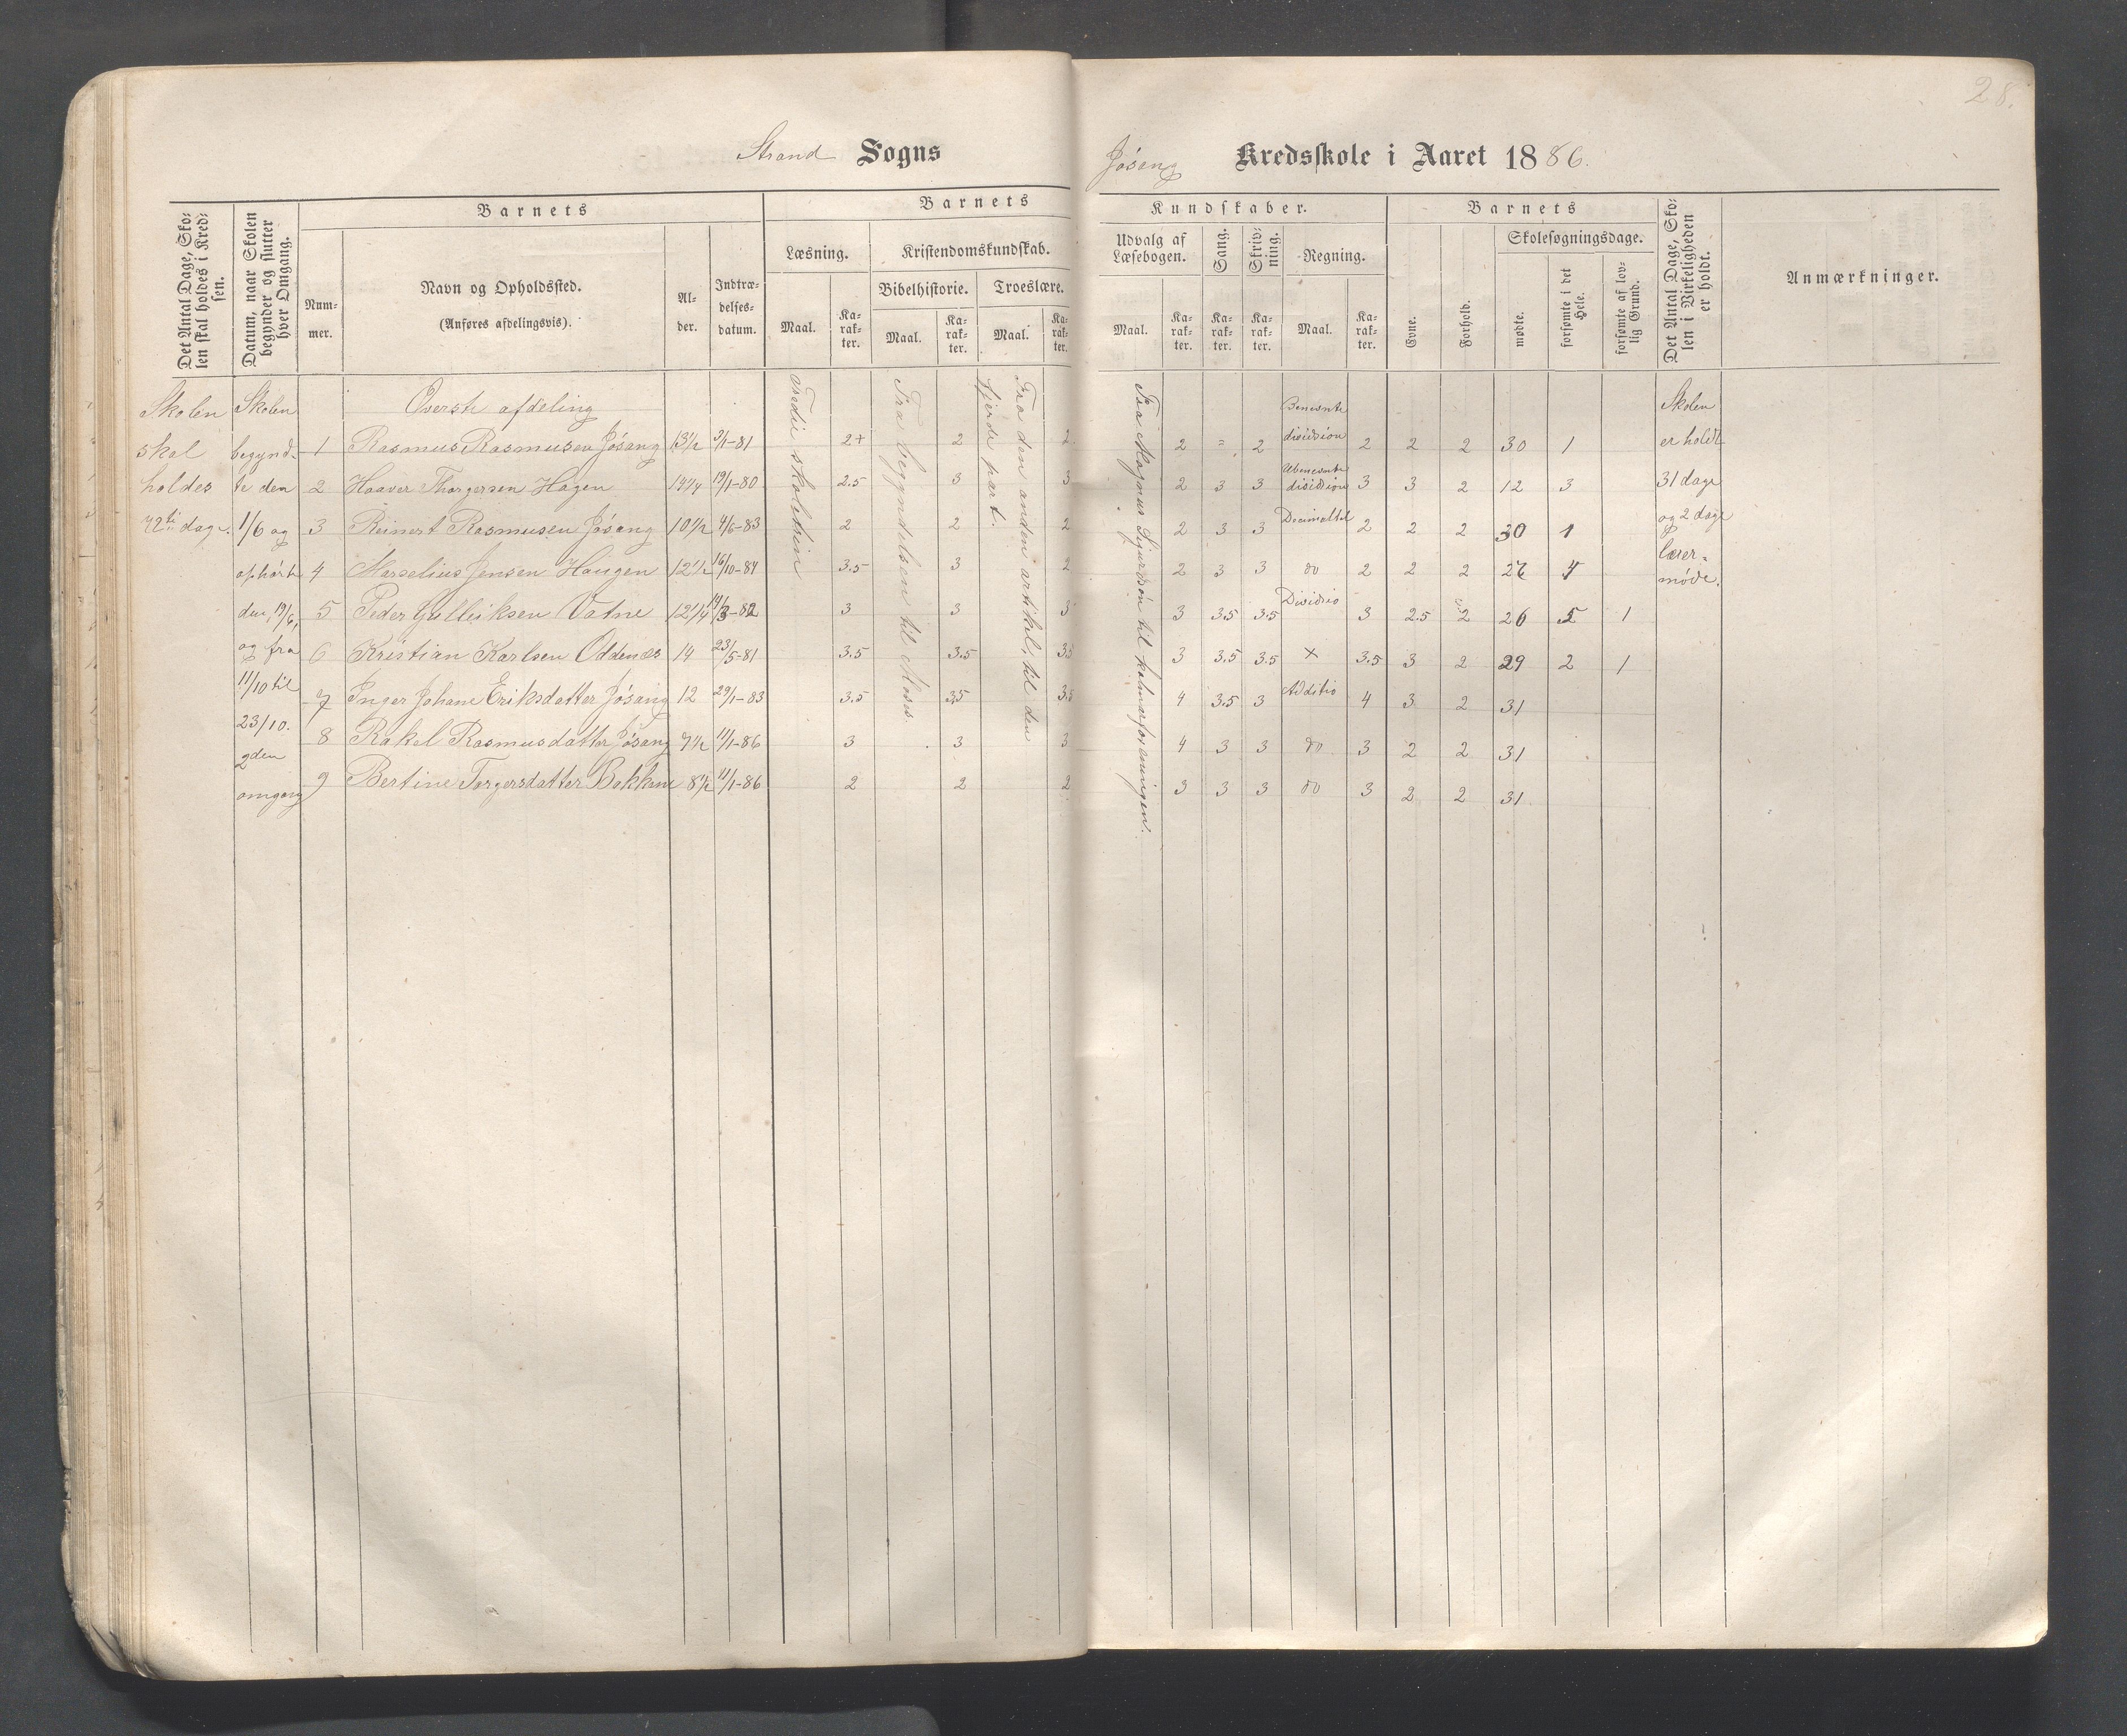 28.
Strand Sogns Jósang Kredsskole i Aaret 1886.
Det Antal Dage, Skolen skal holdes i Kredsen.
Datum, naar Skolen begynder og slutter hver Omgang.
Barnets
Nummer.
Navn og Opholdssted.
(Anføres afdelingsvis).
Alder.
Indtrædelsesdatum.
Barnets Kundskaber.
Læsning.
Maal.
Karakter.
Kristendomskundskab.
Bibelhistorie.
Maal.
Karakter.
Troeslære.
Maal.
Karakter.
Udvalg af Læsebogen.
Maal.
Karakter.
Sang.
Karakter.
Skrivning.
Karakter.
Regning.
Maal.
Karakter.
Barnets
Evne.
Forhold.
Skolesøgningsdage.
mødte.
forsømte i det Hele.
forsømte af lovlig Grund.
Det Antal Dage, Skolen i Virkeligheden er holdt.
Anmærkninger.
Skolen
skal
holdes
72ti dage.
Skolen
begynd-
te den
1/6 og
ophórte
den 19/6,
og fra
11/10 til
23/10.
2den
omgang
Øverste afdeling
Tredie skoletrin
Fra begyndelsen til Moses
Fra den anden artikel, til den
fjerde part.
Fra Magnus Sigurdsøn til kalmarforeningen.
1 Rasmus Rasmusen Jósang 13 1/2 3/1-81 2+ 2 2 2 = 2 Benævnte division 2 2 2 30 1
2 Haaver Thorgersen Hagen 14 1/4 19/1-80 2.5 3 3 2 3 3 Ubenævnte division 3 3 2 12 3
3 Reinert Rasmusen Jósang 10 1/2 4/6-83 2 2 2 2 3 3 Decimaltal 2 2 2 30 1
4 Marselius Jensen Haugen 12 1/2 16/10-84 3.5 3 2 2 3 3 do 2 2 2 4
5 Peder Gulleiksen Vatne 12 1/4 14/3-82 3 3 3 3 3.5 3.5 Divisio 3 2.5 2 26 5 1
6 Kristian Karlsen Oddenæs 14 23/5-81 3.5 3.5 3.5 3 3.5 3.5 × 3.5 3 2 29 2 1
7 Inger Johane Eriksdatter Jósang 12 29/1-83 3.5 3.5 3.5 4 3.5 3 Additio 4 3 2 31
8 Rakel Rasmusdatter Jósang 7 1/2 11/1-86 3 3 3 4 3 3 do 3 2 2 31
9 Bertine Torgersdatter Bakken 8 1/2 11/1-86 2 2 2 3 3 3 do 3 2 2 31
Skolen
er holdt
31 dage
og 2 dage
lærer-
móde.